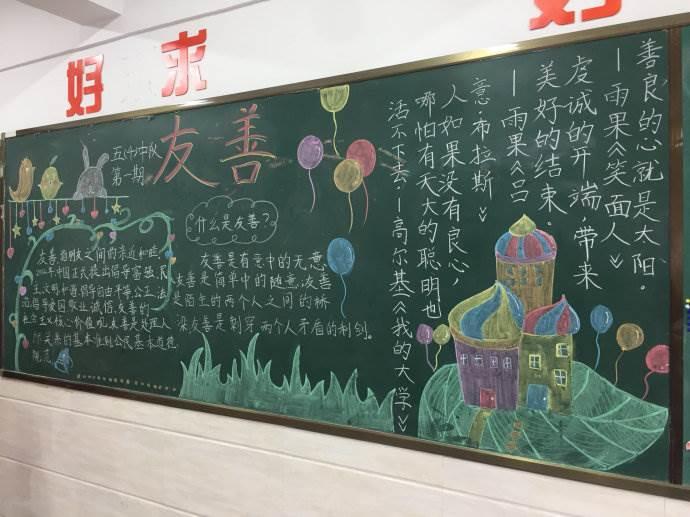 好 求 好
五(4)中队
第一期
友善
什么是友善?
友善指朋友之间的亲近和睦,
年中国正式提出倡导富强、民
主、文明、和谐,倡导自由、平等、公正、法
治,倡导爱国、敬业、诚信、友善的
社会主义核心价值观,友善是处理人
际关系的基本准则公民基本道德
规范。
友善是有意中的无意
友善是简单中的随意,友善
是陌生的两个人之间的桥
梁友善是刺穿两个人矛盾的利剑。
善良的心就是太阳。
—雨果《笑面人》
虔诚的开端,带来
美好的结束。
—雨果《吕
意·布拉斯》
人如果没有良心,
哪怕有天大的聪明也
活不下去—高尔基《我的大学》